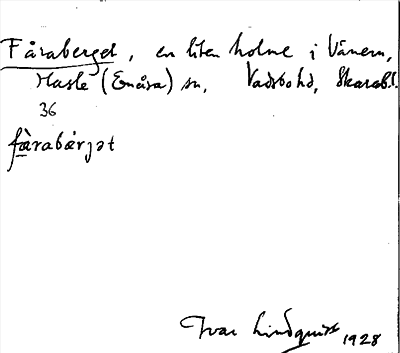 Fåraberget, en liten holme i Vänern,
Hasle (Enåsa) sn, Vadsbo hd, Skarab.l.
36
fàrabàrjət
Ivar Lindquist 1928